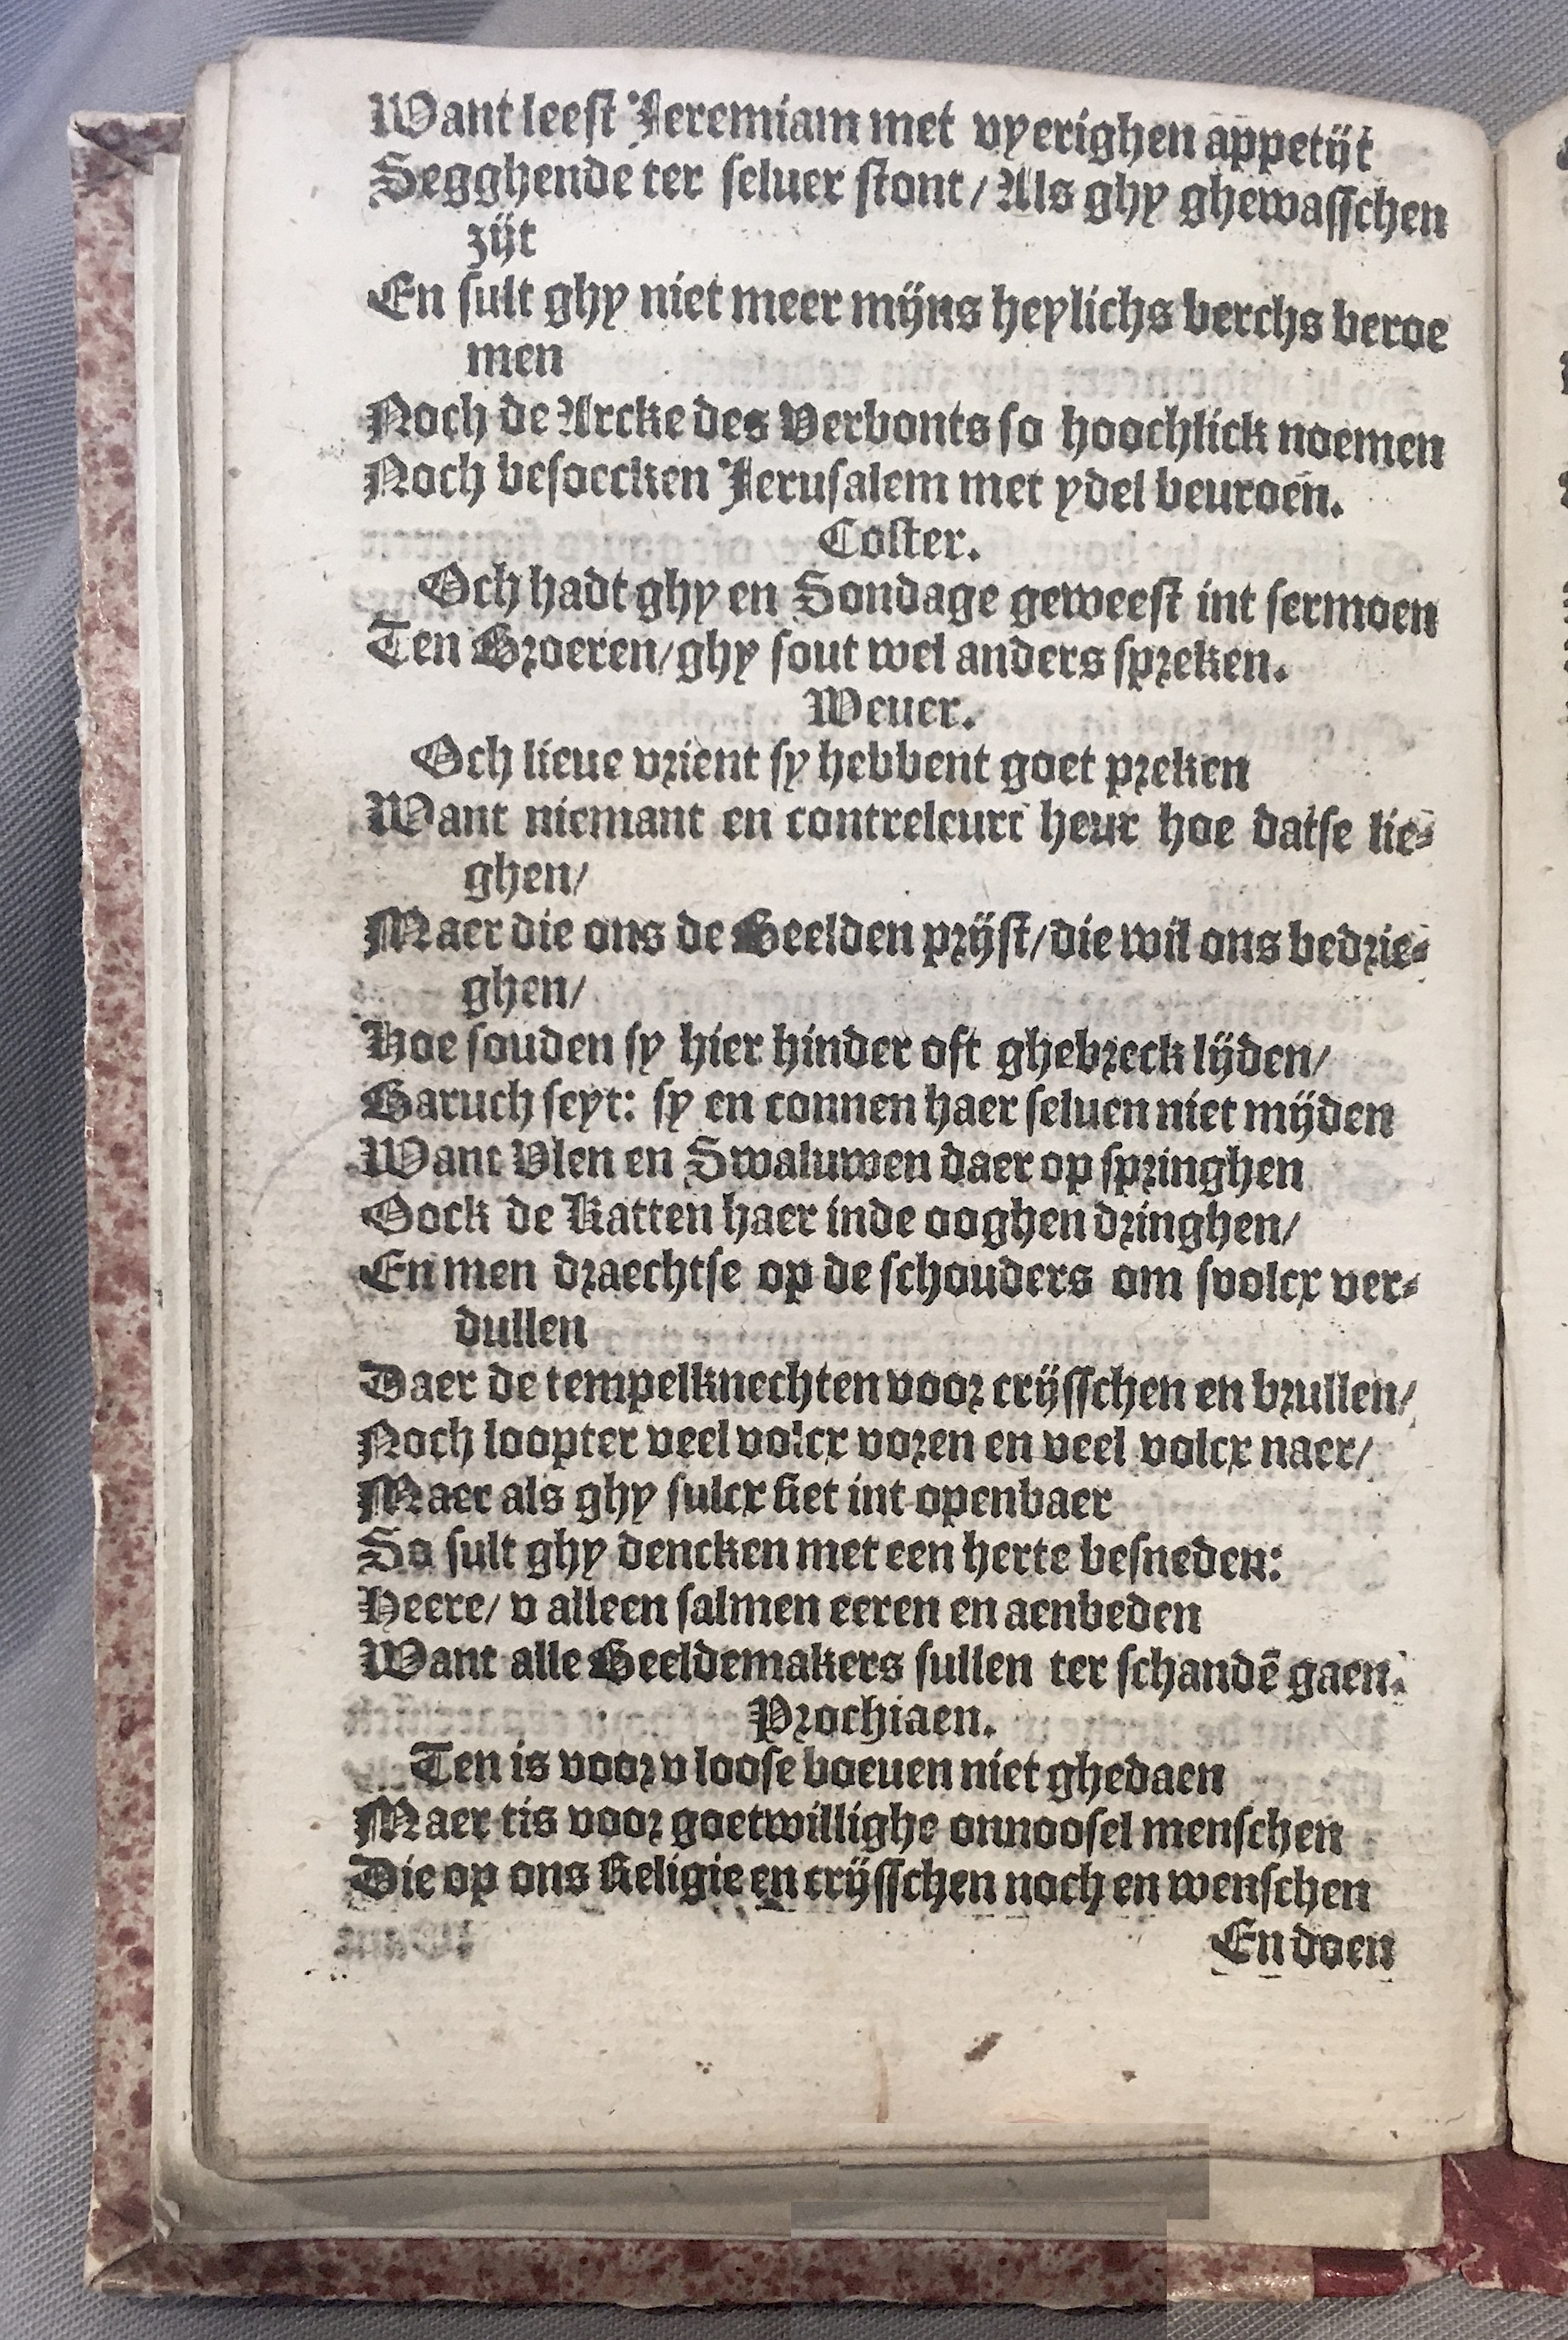 Want leest Jeremiam met vyerighen appetijt
Segghende ter seluer stont/ Als ghy ghewasschen
zijt
En sult ghy niet meer mijns heylichs berchs beroe
men
Noch de Arcke des Verbonts so hoochlick noemen
Noch besoecken Jerusalem met ydel beuroen.
Coster.
Och hadt ghy en Sondage geweest int sermoen
Ten Broeren/ ghy sout wel anders spreken.
Weuer.
Och lieue vrient sy hebbent goet preken
Want niemant en contreleurt heur hoe datse lie-
ghen/
Maer die ons de Beelden prijst/ die wil ons bedrie-
ghen/
Hoe souden sy hier hinder oft ghebreck lijden/
Baruch seyt: sy en connen haer seluen niet mijden
Want Vlen en Swaluwen daer op springhen
Oock de Katten haer inde ooghen dringhen/
En men draechtse op de schouders om svolcx ver-
dullen
Daer de tempelknechten voor crijsschen en brullen/
Noch loopter veel volcx voren en veel volcx naer/
Maer als ghy sulcx siet int openbaer
So sult ghy dencken met een herte besneden:
Heere/ v alleen salmen eeren en aenbeden
Want alle Beeldemakers sullen ter schandē gaen.
Prochiaen.
Ten is voor v loose boeuen niet ghedaen
Maer tis voor goetwillighe onnoosel menschen
Die op ons Religie en crijsschen noch en wenschen
En doen